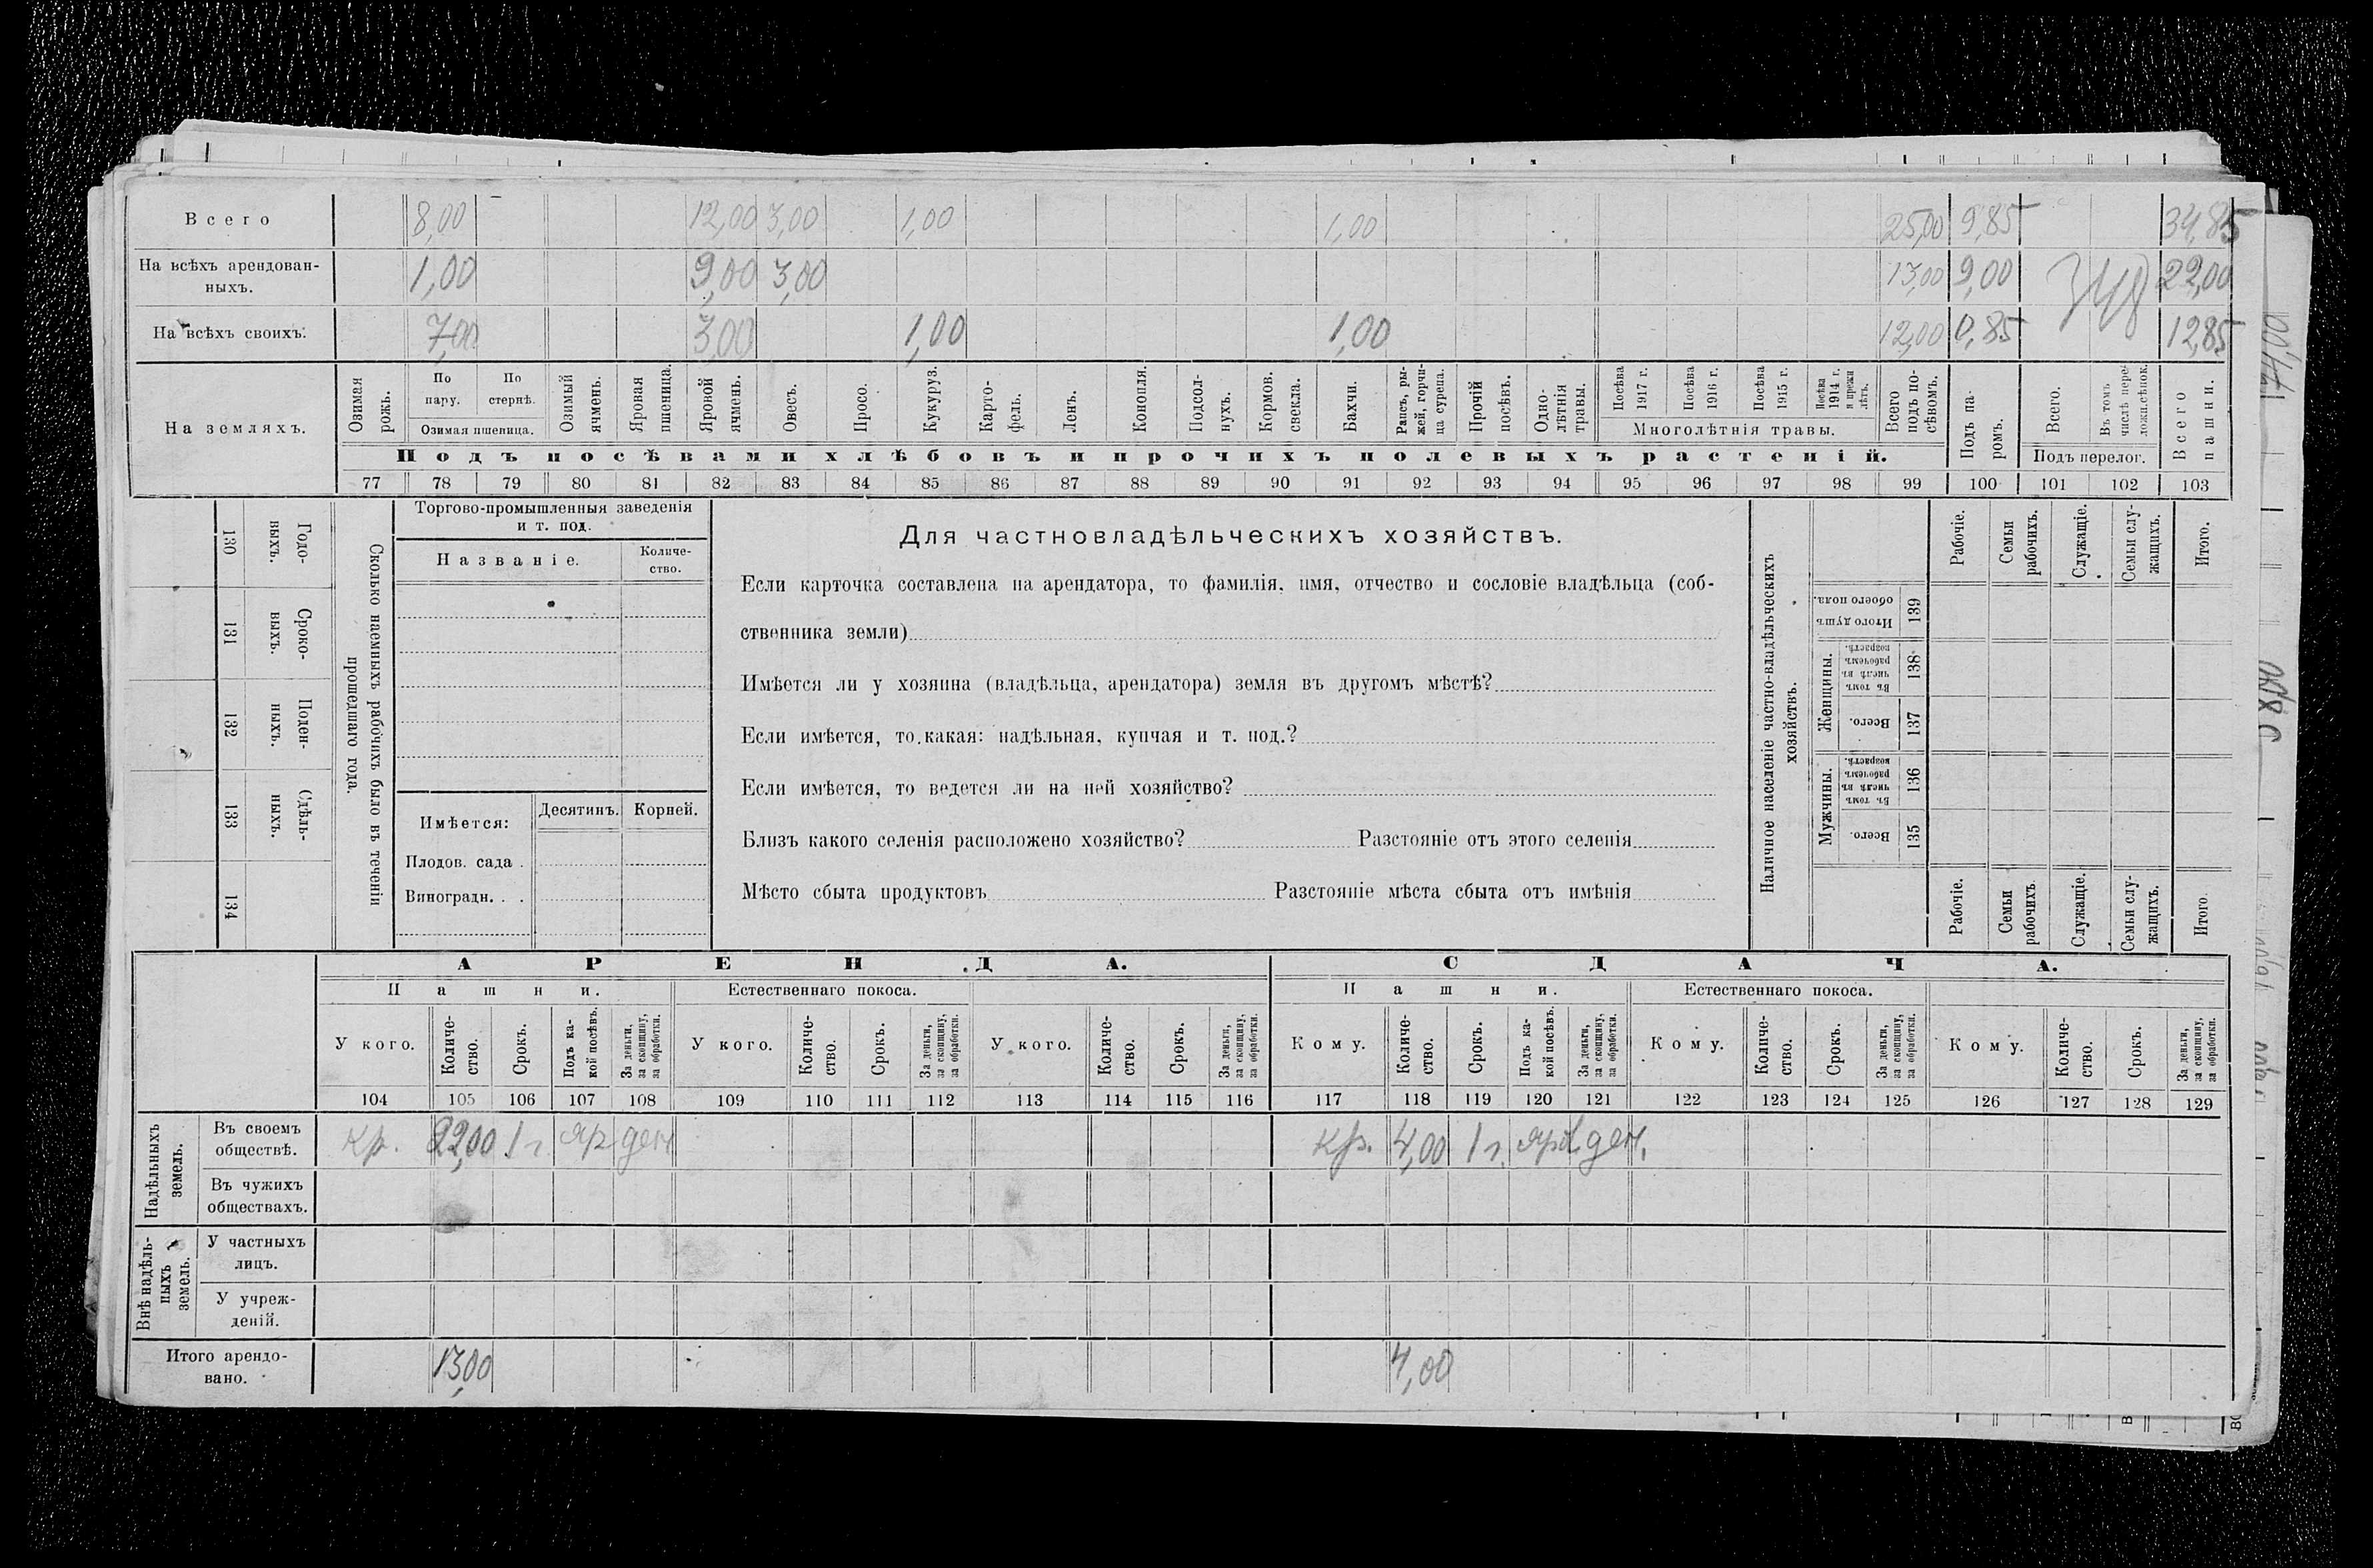 Всего 8,00 12,00 3,00 1,00 1,00 25,00 9,85 34,85
На всѣхъ арендован-
ныхъ. 1,00 9,00 3,00 13,00 9,00 22,00
На всѣхъ своихъ. 7,00 3,00 1,00 1,00 12,00 0,85 12,85
На земляхъ.
Озимая рожь.
По пару.
По стернѣ.
Озимая пшеница.
Озимый ячмень.
Яровая пшеница.
Яровой ячмень.
Овесъ.
Просо.
Кукуруз.
Карто-
фель.
Ленъ.
Конопля.
Подсол-
нухъ.
Кормов. свекла.
Бахчи.
Рапсъ, ры-
жей, горчи-
ца сурепа.
Прочій посѣвъ.
Одно-
лѣтнія травы.
Посѣва 1917 г.
Посѣва 1916 г.
Посѣва 1915 г.
Посѣва 1914 г. и прежн лѣтъ.
Многолѣтнія травы.
Всего подъ по-
сѣвомъ.
Подъ па-
ромъ.
Всего.
Въ томъ числѣ пере-
ложн.сѣнок.
Подъ перелог.
Всего пашни.
Подъ посѣвами хлѣбовъ и прочихъ полевыхъ растеній.
77 78 79 80 81 82 83 84 85 86 87 88 89 90 91 92 93 94 95 96 97 98 99 100 101 102 103
130 Годо-
выхъ.
131 Сроко-
выхъ.
132 Поден-
ныхъ.
133 Сдѣль-
ныхъ.
134
Сколько наемныхъ рабочихъ было въ теченіи
прошедшаго года.
Торгово-промышленныя заведенія
и т. под.
Названіе.
Количе-
ство.
Имѣется: Десятинъ. Корней.
Плодов. сада .
Виноградн. . .
Для частновладѣльческихъ хозяйствъ.
Если карточка составлена на арендатора, то фамилія, имя, отчество и сословіе владѣльца (соб-
ственника земли)
Имѣется ли у хозяина (владѣльца, арендатора) земля въ другомъ мѣстѣ?
Если имѣется, то какая: надѣльная, купчая и т. под.?
Если имѣется, то ведется ли на ней хозяйство?
Близъ какого селенія расположено хозяйство? Разстояніе отъ этого селенія
Мѣсто сбыта продуктовъ Разстояніе мѣста сбыта отъ имѣнія
Наличное населеніе частно-владѣльческихъ
хозяйствъ.
Рабочіе.
Семьи рабочихъ.
Служащіе.
Семьи слу-
жащихъ.
Итого.
Итого душъ обоего пола. 139
Женщины.
Въ томъ числѣ въ рабочемъ возрастѣ. 138
Всего. 137
Мужчины.
Въ томъ числѣ въ рабочемъ возрастѣ. 136
Всего. 135
Рабочіе.
Семьи рабочихъ.
Служащіе.
Семьи слу-
жащихъ.
Итого.
АРЕНДА. СДАЧА.
Пашни. Естественнаго покоса. Пашни. Естественнаго покоса.
У кого. Количе-
ство. Срокъ. Подъ ка-
кой посѣвъ. За деньги, за скопщину, за обработки.
У кого. Количе-
ство. Срокъ. За деньги, за скопщину, за обработки.
У кого. Количе-
ство. Срокъ. За деньги, за скопщину, за обработки.
Кому. Количе-
ство. Срокъ. Подъ ка-
кой посѣвъ. За деньги, за скопщину, за обработки.
Кому. Количе-
ство. Срокъ. За деньги, за скопщину, за обработки.
Кому. Количе-
ство. Срокъ. За деньги, за скопщину, за обработки.
104 105 106 107 108 109 110 111 112 113 114 115 116 117 118 119 120 121 122 123 124 125 126 127 128 129
Надѣльныхъ земель.
Въ своемъ
обществѣ. кр. 22,00 1 г. яр ден кр. 4,00 1 г. яров ден.
Въ чужихъ
обществахъ.
Внѣ надѣль-
ныхъ земель.
У частныхъ
лицъ.
У учреж-
деній.
Итого арендо-
вано. 13,00 4,00